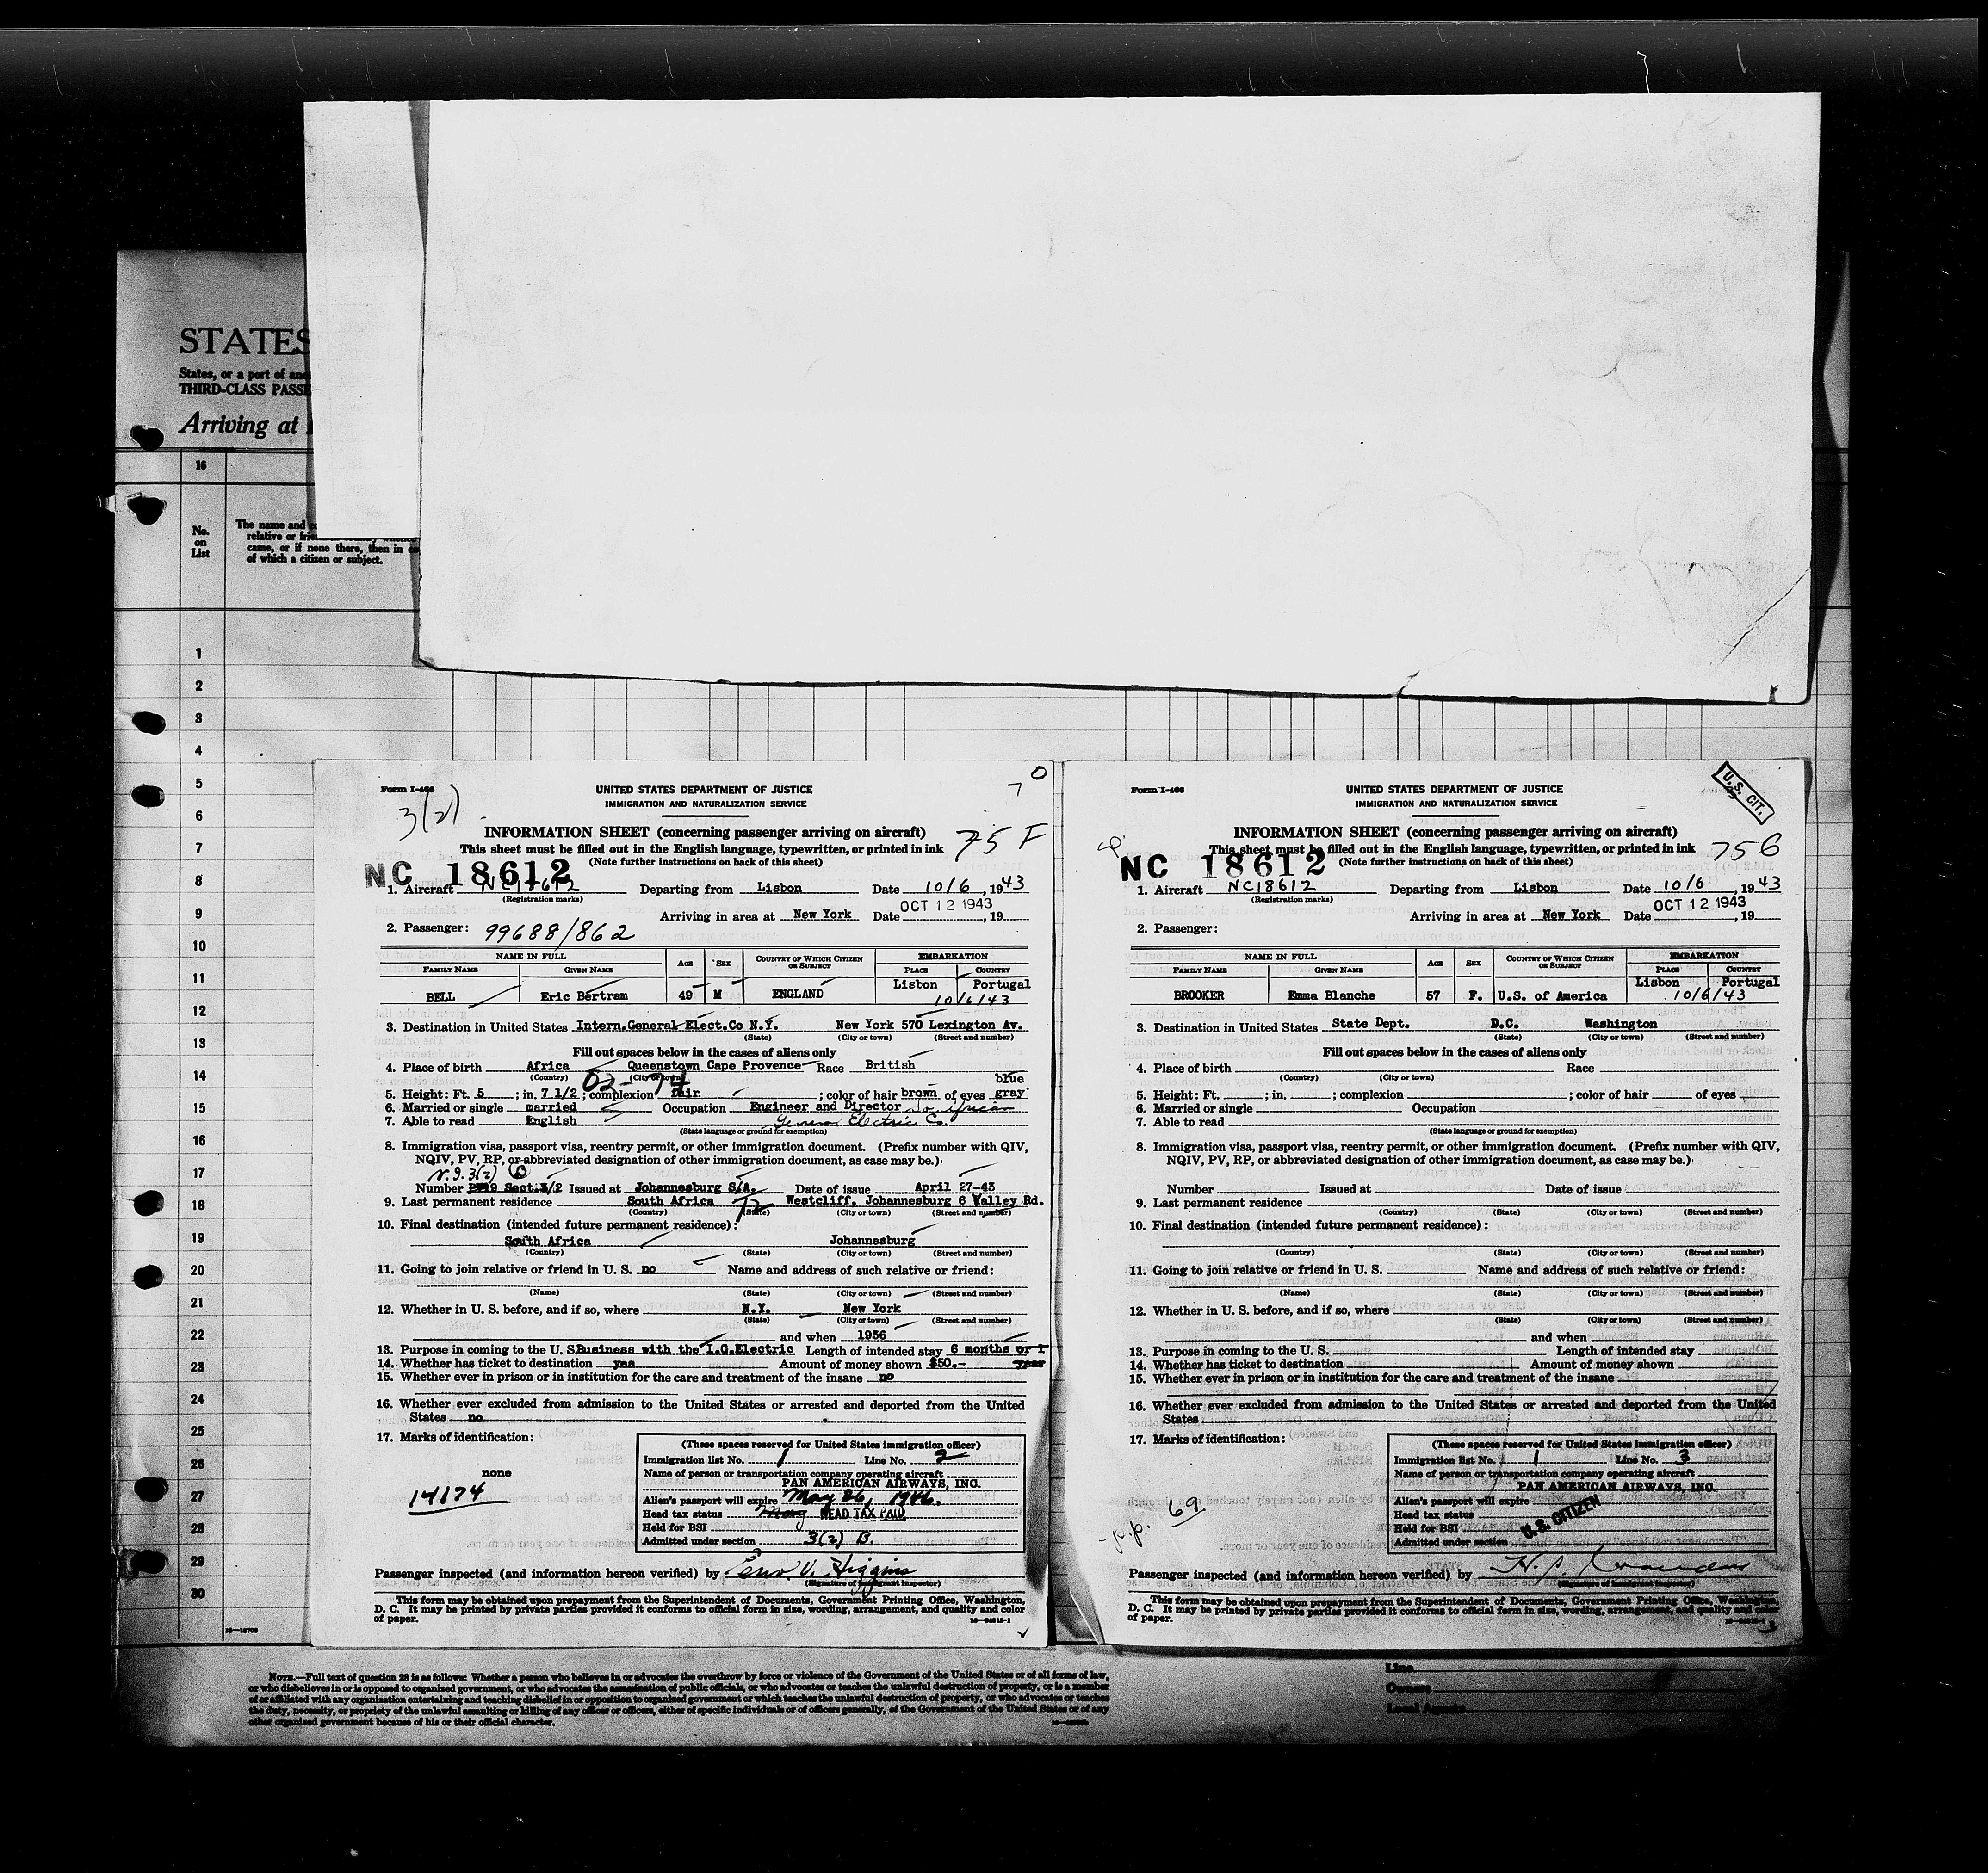 STATES
States, or a port of
THIRD-CLASS
Arriving at
16
No.
on
List
The name and
relative or
came, or if none there, then in
of which a citizen or subject.
1
2
3
4
5
6
7
8
9
10
11
12
13
14
15
16
17
18
19
20
21
22
23
24
25
26
27
28
29
30
Form I-466
3(2)
7 0
UNITED STATES DEPARTMENT OF JUSTICE
IMMIGRATION AND NATURALIZATION SERVICE
INFORMATION SHEET (concerning passenger arriving on aircraft) 75 F
This sheet must be filled out in the English language, typewritten, or printed in ink
(Note further instructions on back of this sheet)
NC 18612
1. Aircraft NC18612 Departing from Lisbon Date 10/6, 1943
(Registration marks)
OCT 12 1943
Arriving in area at New York Date , 19
2. Passenger: 99688/862
NAME IN FULL AGE SEX COUNTRY OF WHICH CITIZEN OR SUBJECT EMBARKATION
FAMILY NAME GIVEN NAME PLACE COUNTRY
BELL Eric Bertram 49 M ENGLAND Lisbon Portugal
10/6/43
3. Destination in United States Intern.General Elect.Co N.Y. New York 570 Lexington Av.
(State) (City or town) (Street and number)
Fill out spaces below in the cases of aliens only
4. Place of birth Africa Queenstown Cape Provence Race British
(Country) (City or town)
02-74
blue
5. Height: Ft. 5 ; in. 7 1/2 ; complexion fair ; color of hair brown of eyes gray
6. Married or single married Occupation Engineer and Director So African
7. Able to read English General Electric Co.
(State language or ground for exemption)
8. Immigration visa, passport visa, reentry permit, or other immigration document. (Prefix number with QIV,
NQIV, PV, RP, or abbreviated designation of other immigration document, as case may be.)
N.I. 3(2)
Number Sect.3/2 Issued at Johannesburg S/A. Date of issue April 27-43
9. Last permanent residence South Africa 72 Westcliff, Johannesburg 6 Valley Rd.
(Country) (State) (City or town) (Street and number)
10. Final destination (intended future permanent residence):
South Africa Johannesburg
(Country) (State) (City or town) (Street and number)
11. Going to join relative or friend in U. S. no Name and address of such relative or friend:
(Name) (State) (City or town) (Street and number)
12. Whether in U. S. before, and if so, where N.Y. New York
(State) (City or town) (Street and number)
and when 1936
13. Purpose in coming to the U. S. Business with the I.G.Electric Length of intended stay 6 months or 1
year
14. Whether has ticket to destination yes Amount of money shown $50.-
15. Whether ever in prison or in institution for the care and treatment of the insane no
16. Whether ever excluded from admission to the United States or arrested and deported from the United
States no
17. Marks of identification:
none
14174
(These spaces reserved for United States immigration officer)
Immigration list No. 1 Line No. 2
Name of person or transportation company operating aircraft
PAN AMERICAN AIRWAYS, INC.
Alien's passport will expire May 26, 1946.
Head tax status HEAD TAX PAID
Held for BSI
Admitted under section 3(2) B.
Passenger inspected (and information hereon verified) by V. Higgins
(Signature of immigrant inspector)
This form may be obtained upon prepayment from the Superintendent of Documents, Government Printing Office, Washington,
D. C. It may be printed by private parties provided it conforms to official form in size, wording, arrangement, and quality and color
of paper.
Form I-466
U. S. CIT.
UNITED STATES DEPARTMENT OF JUSTICE
IMMIGRATION AND NATURALIZATION SERVICE
INFORMATION SHEET (concerning passenger arriving on aircraft) 75 G
This sheet must be filled out in the English language, typewritten, or printed in ink
(Note further instructions on back of this sheet)
NC 18612
1. Aircraft NC18612 Departing from Lisbon Date 10/6, 1943
(Registration marks)
OCT 12 1943
Arriving in area at New York Date , 19
2. Passenger:
NAME IN FULL AGE SEX COUNTRY OF WHICH CITIZEN OR SUBJECT EMBARKATION
FAMILY NAME GIVEN NAME PLACE COUNTRY
BROOKER Emma Blanche 57 F. U.S. of America Lisbon Portugal
10/6/43
3. Destination in United States State Dept. D.C. Washington
(State) (City or town) (Street and number)
Fill out spaces below in the cases of aliens only
4. Place of birth Race
(Country) (City or town)
5. Height: Ft. ; in. ; complexion ; color of hair of eyes
6. Married or single Occupation
7. Able to read
(State language or ground for exemption)
8. Immigration visa, passport visa, reentry permit, or other immigration document. (Prefix number with QIV,
NQIV, PV, RP, or abbreviated designation of other immigration document, as case may be.)
Number Issued at Date of issue
9. Last permanent residence
(Country) (State) (City or town) (Street and number)
10. Final destination (intended future permanent residence):
(Country) (State) (City or town) (Street and number)
11. Going to join relative or friend in U. S. Name and address of such relative or friend:
(Name) (State) (City or town) (Street and number)
12. Whether in U. S. before, and if so, where
(State) (City or town) (Street and number)
and when
13. Purpose in coming to the U. S. Length of intended stay
14. Whether has ticket to destination Amount of money shown
15. Whether ever in prison or in institution for the care and treatment of the insane
16. Whether ever excluded from admission to the United States or arrested and deported from the United
States
17. Marks of identification:
p.p. 69
(These spaces reserved for United States immigration officer)
Immigration list No. 1 Line No. 3
Name of person or transportation company operating aircraft
PAN AMERICAN AIRWAYS, INC.
Alien's passport will expire
Head tax status
Held for BSI
U. S. CITIZEN
Admitted under section
Passenger inspected (and information hereon verified) by
(Signature of immigrant inspector)
This form may be obtained upon prepayment from the Superintendent of Documents, Government Printing Office, Washington,
D. C. It may be printed by private parties provided it conforms to official form in size, wording, arrangement, and quality and color
of paper.
NOTE.—Full text of question 28 is as follows: Whether a person who believes in or advocates the overthrow by force or violence of the Government of the United States or of all forms of law,
or who disbelieves in or is opposed to organized government, or who advocates the assassination of public officials, or who advocates or teaches the unlawful destruction of property, or is a member
of or affiliated with any organization entertaining and teaching disbelief in or opposition to organized government or which teaches the unlawful destruction of property, or who advocates or teaches
the duty, necessity, or propriety of the unlawful assaulting or killing of any officer or officers, either of specific individuals or of officers generally, of the Government of the United States or of any
other organized government because of his or their official character.
Line
Owners
Local Agents